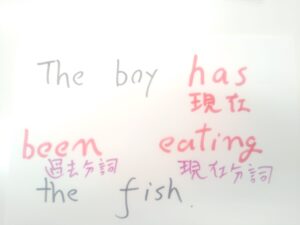 The boy has
現在
been eating
過去分詞 現在分詞
the fish.